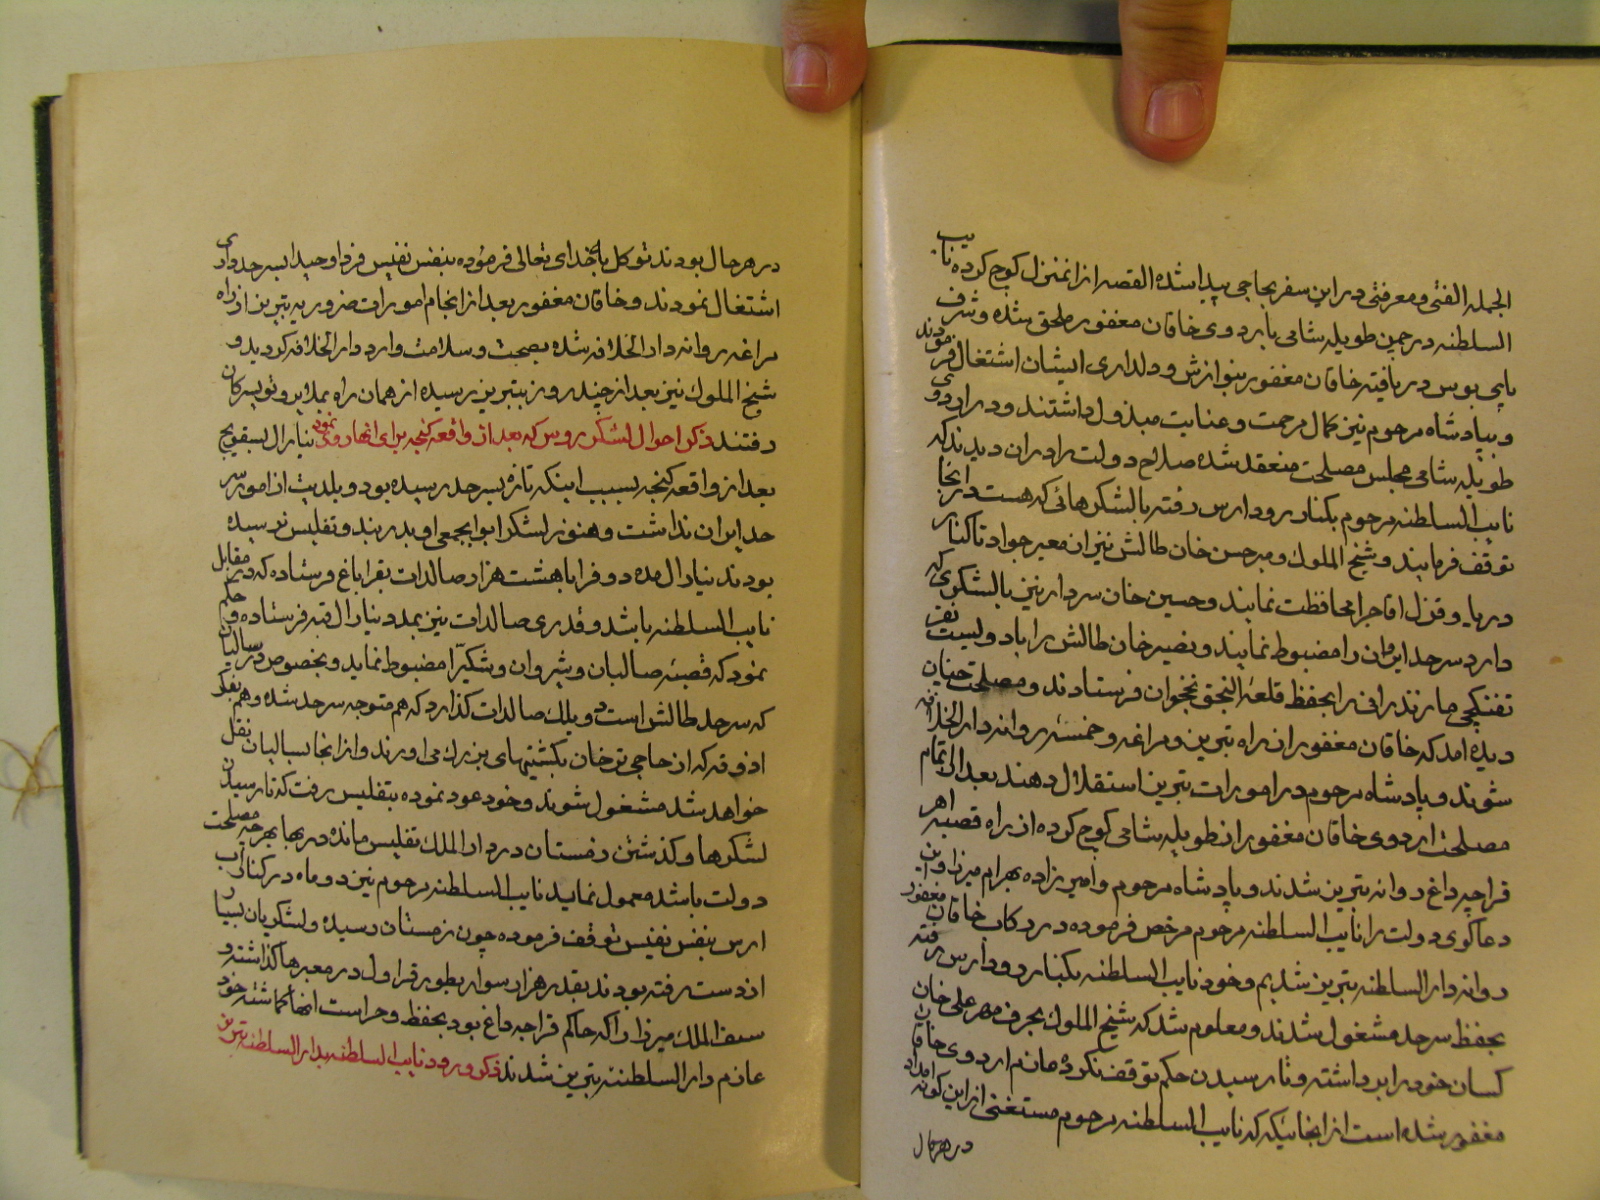 الجمله الفتی و معرفتی در این سفر بحاجی پیدا شده القصه از انمنزل کوچ کرده نایب
السلطنه در چمن طویله شامی باردوی خاقان مغفور ملحق شده و شرف
پای بوس دریافته خاقان مغفور بنوازش و دلداری ایشان اشتغال فرمودند
و بپادشاه مرحوم نیز کمال مرحمت و عنایت مبذول داشتند و در اردوی
طویله شامی مجلس مصلحت منعقد شده صلاح دولت را در ان دیدند که
نایب السلطنه مرحوم بکنار رود ارس رفته بالشکرهائی که هست در انجا
توقف فرمایند و شیخ الملوک و میر حسن خان طالش نیز ان معبر جواد تا کنار
دریا و قزل اقاج را محافظت نمایند و حسین خان سردار نیز بالشکری که
دارد سرحد ایروان را مضبوط نمایند و نصیر خان طالش را با دویست نفر
تفنکچی مازندرانی بحفظ قلعه النجق نخجوان فرستادند و مصلحت چنان
دیده امد که خاقان مغفور از راه تبریز و مراغه و خمسه روانه دار الخلافه
شوند و پادشاه مرحوم در امورات تبریز استقلال دهند بعد از اتمام
مصلحت اردوی خاقان مغفور از طویله شامی کوچ کرده از راه قصبه اهر
قراجه داغ روانه تبریز شدند و پادشاه مرحوم و امیرزاده بهرام میرزا و این
دعا کوی دولت را نایب السلطنه مرحوم مرخص فرموده در رکاب خاقان مغفور
روانه دار السلطنه تبریز شدیم و خود نایب السلطنه بکنار رود ارس رفته
بحفظ سرحد مشغول شدند و معلوم شد که شیخ الملوک بحرف مهر علی خان
کسان خود را برداشته و تا رسیدن حکم توقف نکرده عازم اردوی خاقان
مغفور شده است از انجائیکه نایب السلطنه مرحوم مستغنی از این کونه امداد
در هر حال
در هر حال بودند توکل بخدای تعالی فرموده بنفس نفیس فردا وحیدا بسرحدداری
اشتغال نمودند و خاقان مغفور بعد از انجام امورات ضروریه تبریز از راه
مراغه روانه دار الخلافه شده بصحت و سلامت وارد دار الخلافه کردید و
شیخ الملوک نیز بعد از چند روز بتبریز رسیده از همان راه بملایر و تویسرکان
رفتند ذکر احوال لشکر روس که بعد از واقعه کنجه برای انها رو نمود ینارال بسقویج
بعد از واقعه کنجه بسبب اینکه تازه بسرحد رسیده بود و بلدیت از امور سر
حد ایران نداشت و هنوز لشکر ابوابجمعی او بدربند و تفلیس نرسیده
بودند ینارال مدد و ف را با هشت هزار صالدات بقراباغ فرستاده که در مقابل
نایب السلطنه باشد و قدری صالدات نیز بمدد ینارال قبه فرستاده و حکم
نمود که قصبه صالیان و شیروان و شکی را مضبوط نماید و بخصوص در سالیان
که سرحد طالش است دویلک صالدات کذارد که هم متوجه سرحد شده و هم بفکر
اذوقه که از حاجی ترخان بکشتیهای بزرک می اورند و از انجا بسالیان نقل
خواهد شد مشغول شوند و خود عود نموده بتفلیس رفت که تا رسیدن
لشکرها و کذشتن زمستان در دار الملک تفلیس مانده در بهار بهرچه مصلحت
دولت باشد معمول نماید نایب السلطنه مرحوم نیز دو ماه در کنار اب
ارس بنفس نفیس توقف فرموده چون زمستان رسیده و لشکریان بسیار
از دست رفته بودند بقدر هزار سوار بطور قراول در معبرها کذاشته و
سیف الملک میرزا را که حاکم قراجه داغ بود بحفظ و حراست انها کماشته خود
عازم دار السلطنه تبریز شدند ذکر ورود نایب السلطنه بدار السلطنه تبریز